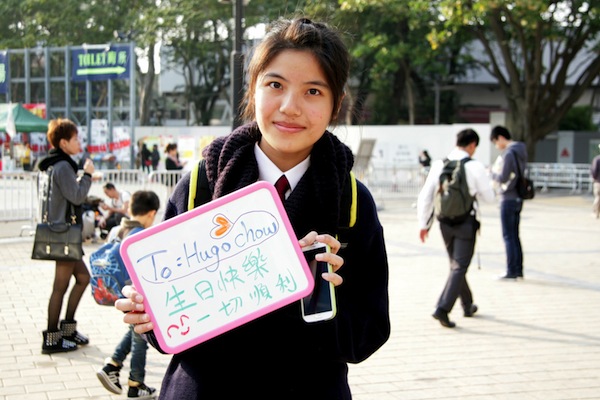 TOILET 廁所
To: Hugo Chow
生日快樂
一切順利